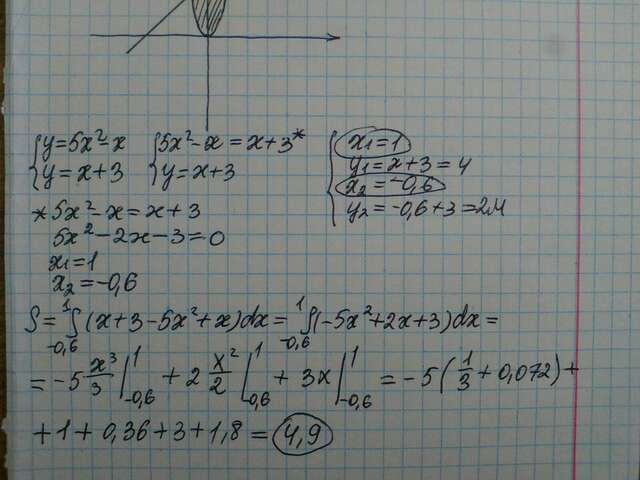 {y=5x²-x {5x²-x=x+3* {x₁=1
{y=x+3 {y=x+3 y₁=x+3=4
x₂=-0,6
*5x²-x=x+3 y₂=-0,6+3=2,4
5x²-2x-3=0
x₁=1
x₂=-0,6
S=∫₋₀,₆¹(x+3-5x²+x)dx=∫₋₀,₆¹(-5x²+2x+3)dx=
=-5 x³/3 |₋₀,₆¹ + 2 x²/2 |₋₀,₆¹ + 3x |₋₀,₆¹ = -5(1/3+0,072)+
+1+0,36+3+1,8=4,9